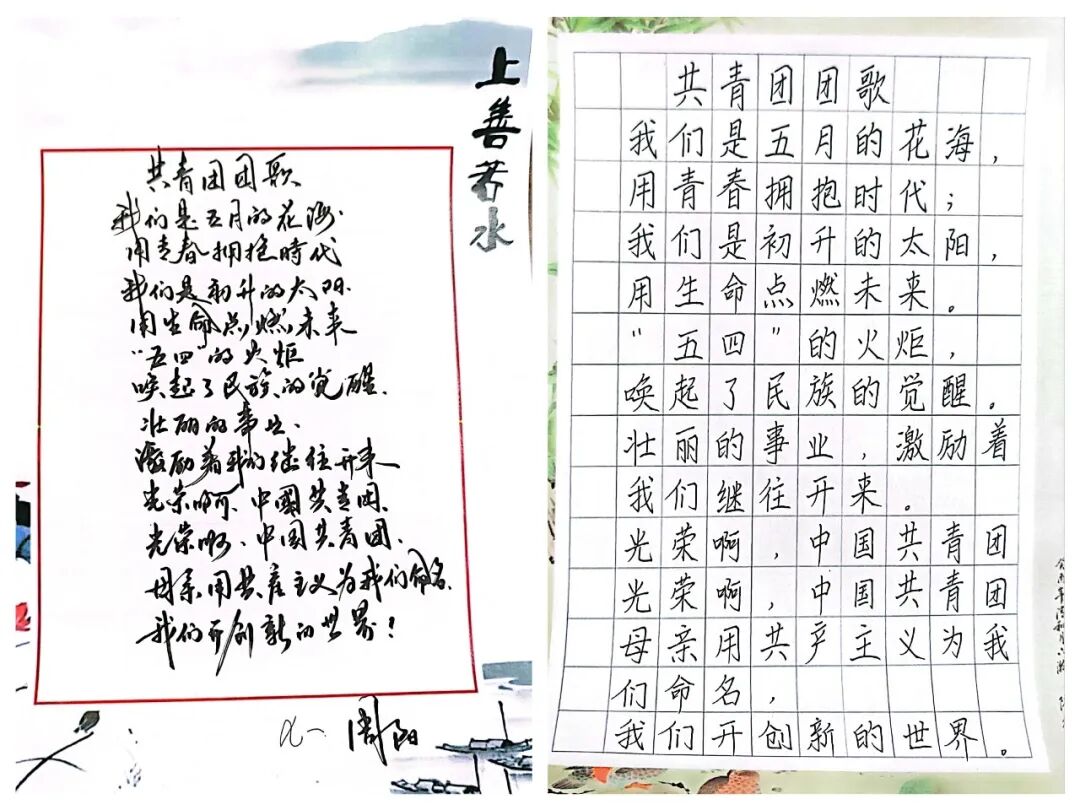 上善若水
共青团团歌
我们是五月的花海.
用青春拥抱時代
我们是初升的太阳.
用生命点燃未来
“五四”的火炬
唤起了民族的觉醒.
壮丽的事业、
激励着我们继往开来
光荣啊、中國共青团.
光荣啊、中国共青團.
母亲用共产主义为我们命名.
我们开创新的世界!
周阳
共青团团歌
我们是五月的花海，
用青春拥抱时代；
我们是初升的太阳，
用生命点燃未来。
“五四”的火炬，
唤起了民族的觉醒。
壮丽的事业，激励着
我们继往开来。
光荣啊，中国共青团
光荣啊，中国共青团
母亲用共产主义为我
们命名，
我们开创新的世界。